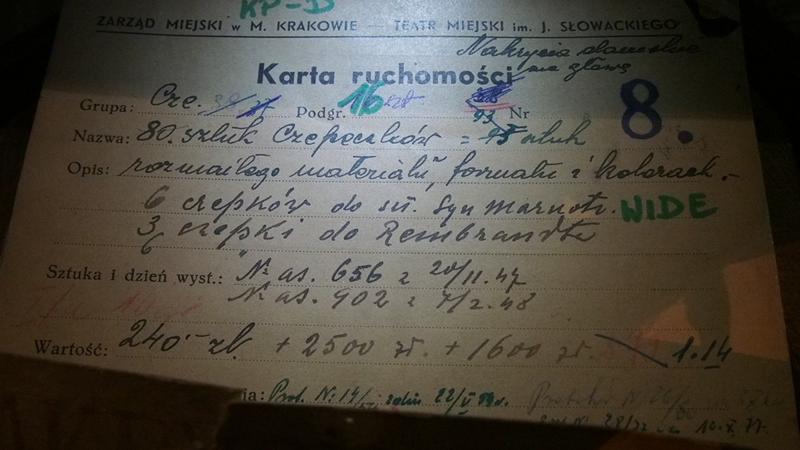 KP-D
ZARZĄD MIEJSKI w M. KRAKOWIE — TEATR MIEJSKI im. J. SŁOWACKIEGO
Nakrycia damskie
na głowę
Karta ruchomości
Grupa: Cze. Podgr. 16 Nr 8.
Nazwa: 80 sztuk Czepeczków = sztuk
Opis: rozmaitego materiału, formatu i kolorach.-
6 czepków do szt. Syn Marnotr. WIDE
3 czepki do Rembrandta
Sztuka i dzień wyst.: Nr as. 656 z 20/11.47
Nr as. 902 z 7/2.48
Wartość: 240.- zł. + 2500 zł. + 1600 zł. 1.14
Prot. Nr 14/ 22/V